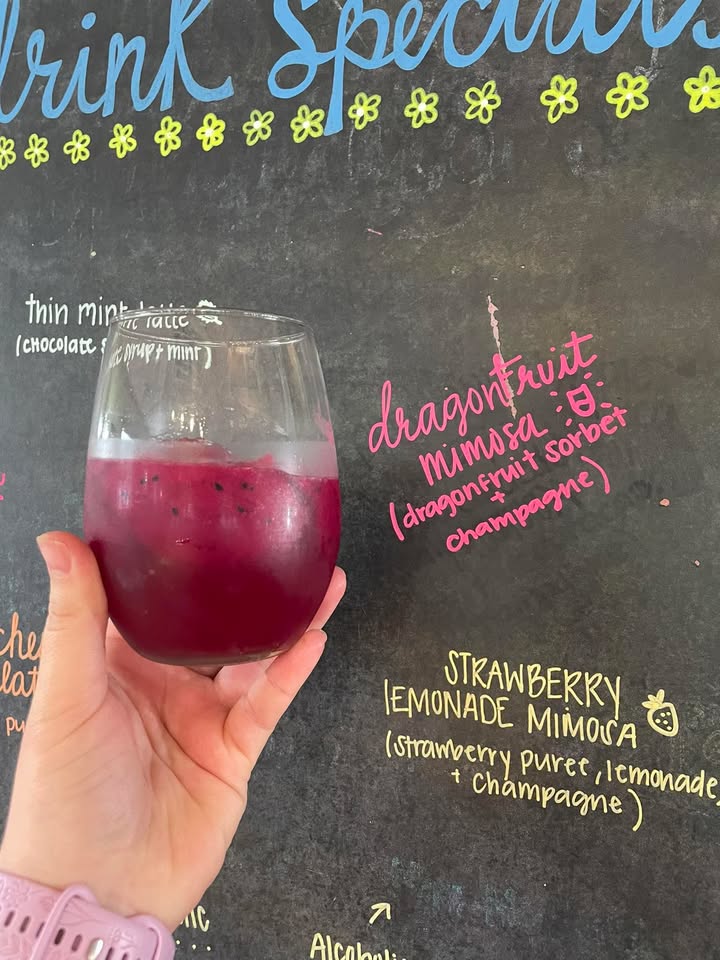 drink Specials
thin mint latte
(chocolate syrup + mint)
dragonfruit
mimosa
(dragonfruit sorbet
+
champagne)
STRAWBERRY
LEMONADE MIMOSA
(strawberry puree, lemonade,
+ champagne)